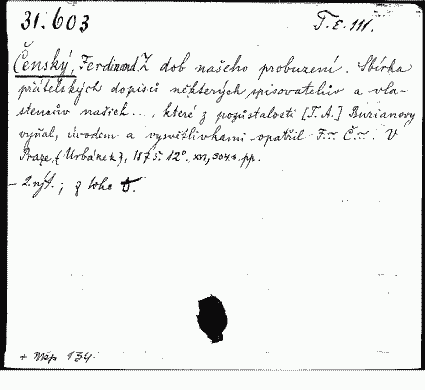 31.603 T.E.III.
Čenský, Ferdinand. Z dob našeho probuzení. Sbírka
přátelských dopisův některých spisovatelův a vla-
stencův našich ..., které z pozůstalosti [T. A.] Burianovy
vyňal, úvodem a vysvětlivkami opatřil F... Č... V
Praze, (Urbánek), 1875. 12°. XVI, 304 pp.
- 2. výt.; z toho
+ Máp 134.